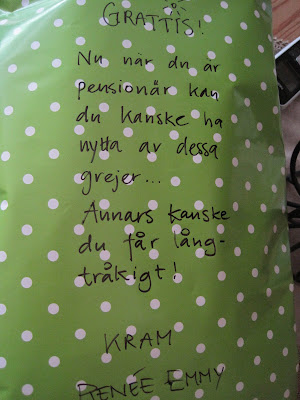 GRATTIS!
Nu när du är
pensionär kan
du kanske ha
nytta av dessa
grejer...
Annars kanske
du får lång-
tråkigt!
KRAM
RENÉE EMMY